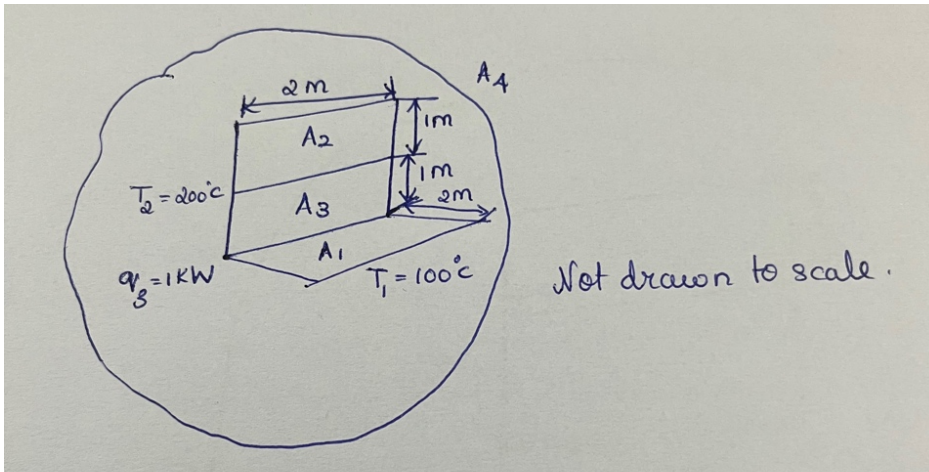 A4
2m
1m
A2
1m
T2 = 200°C
A3
2m
A1
q3 = 1KW
T1 = 100°C
Not drawn to scale.